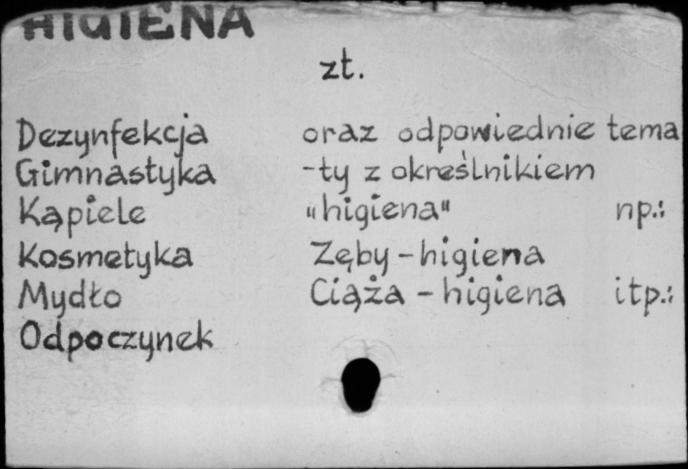 HIGIENA
zt.
Dezynfekcja oraz odpowiednie tema
Gimnastyka -ty z określnikiem
Kąpiele "higiena" np.:
Kosmetyka Zęby - higiena
Mydło Ciąża - higiena itp.:
Odpoczynek